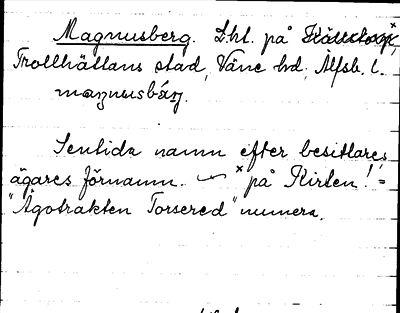 Magnusberg. Lht. på
Trollhättans stad, Väne hd, Älfsb. l.
magnusbärj.
Sentida namn efter besittares,
ägares förnamn. — ˣ på Kirten! =
"Ägotrakten Torsered" numera.